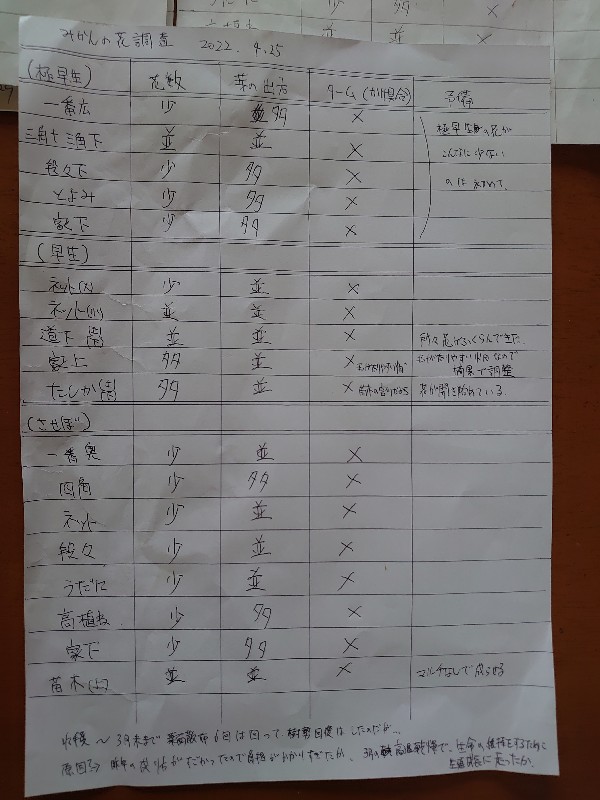 みかんの花調査 2022. 4.25
(極早生) 花数 芽の出方 ターム(かけ具合) 予備
一番広 少 多 ×
三角 三角下 並 並 ×
段々下 少 多 ×
とよみ 少 多 ×
家下 少 多 ×
極早生の花が
こんなに少ない
のは初めて。
(早生)
ネット(大) 少 並 ×
ネット(小) 並 並 ×
道下 並 並 × 所々花がふくらんできた。
家上 多 並 ×
摘果で調整
たしか 多 並 × 花が開き始めている。
(させぼ)
一番奥 少 並 ×
四角 少 多 ×
ネット 少 並 ×
段々 少 並 ×
うだに 少 並 ×
高植 少 多 ×
家下 少 多 ×
苗木 並 並 × マルチなしで成らせる
収穫〜3月末まで葉面散布6回は回って、樹勢回復はしたのだが、
原因⇒昨年の成りがだったので負担がかかりすぎたか、3月の高温乾燥で、生命の維持をするために
生殖に走ったか。